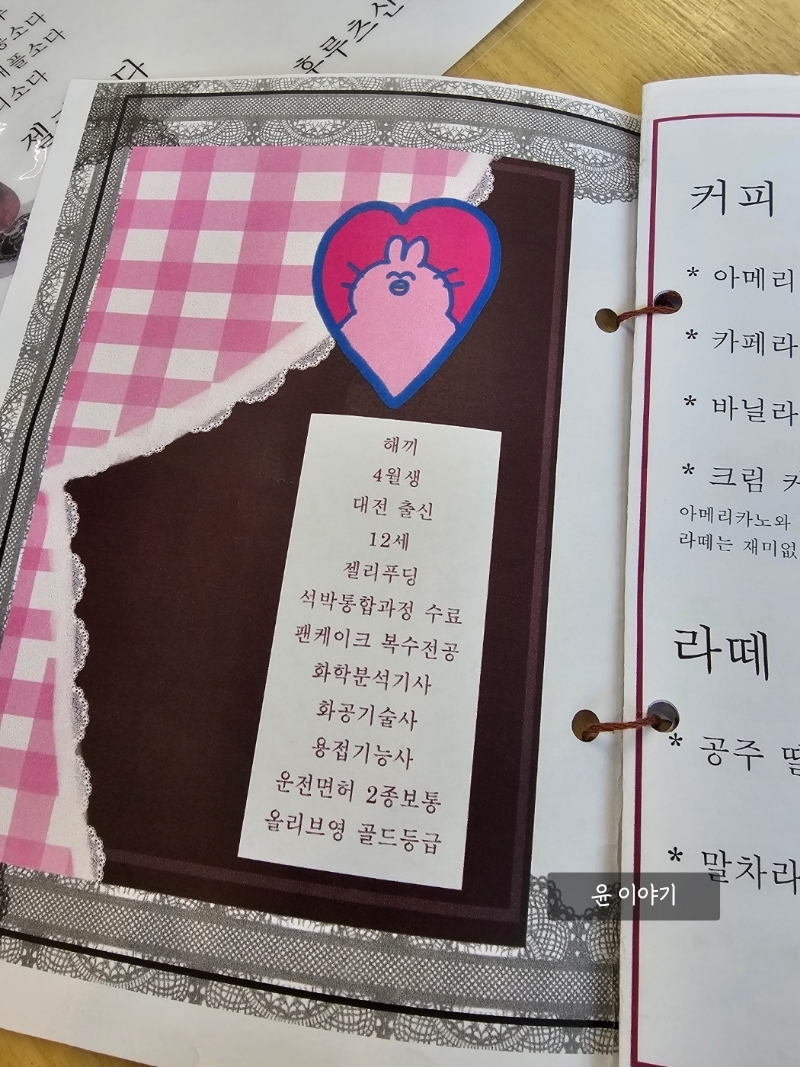 후루츠신
종소다
애플소다
소다
다
젤
해끼
4월생
대전 출신
12세
젤리푸딩
석박통합과정 수료
팬케이크 복수전공
화학분석기사
화공기술사
용접기능사
운전면허 2종보통
올리브영 골드등급
커피
* 아메리
* 카페라
* 바닐라
* 크림 커
아메리카노와
라떼는 재미없
라떼
* 공주 딸
* 말차라
윤 이야기